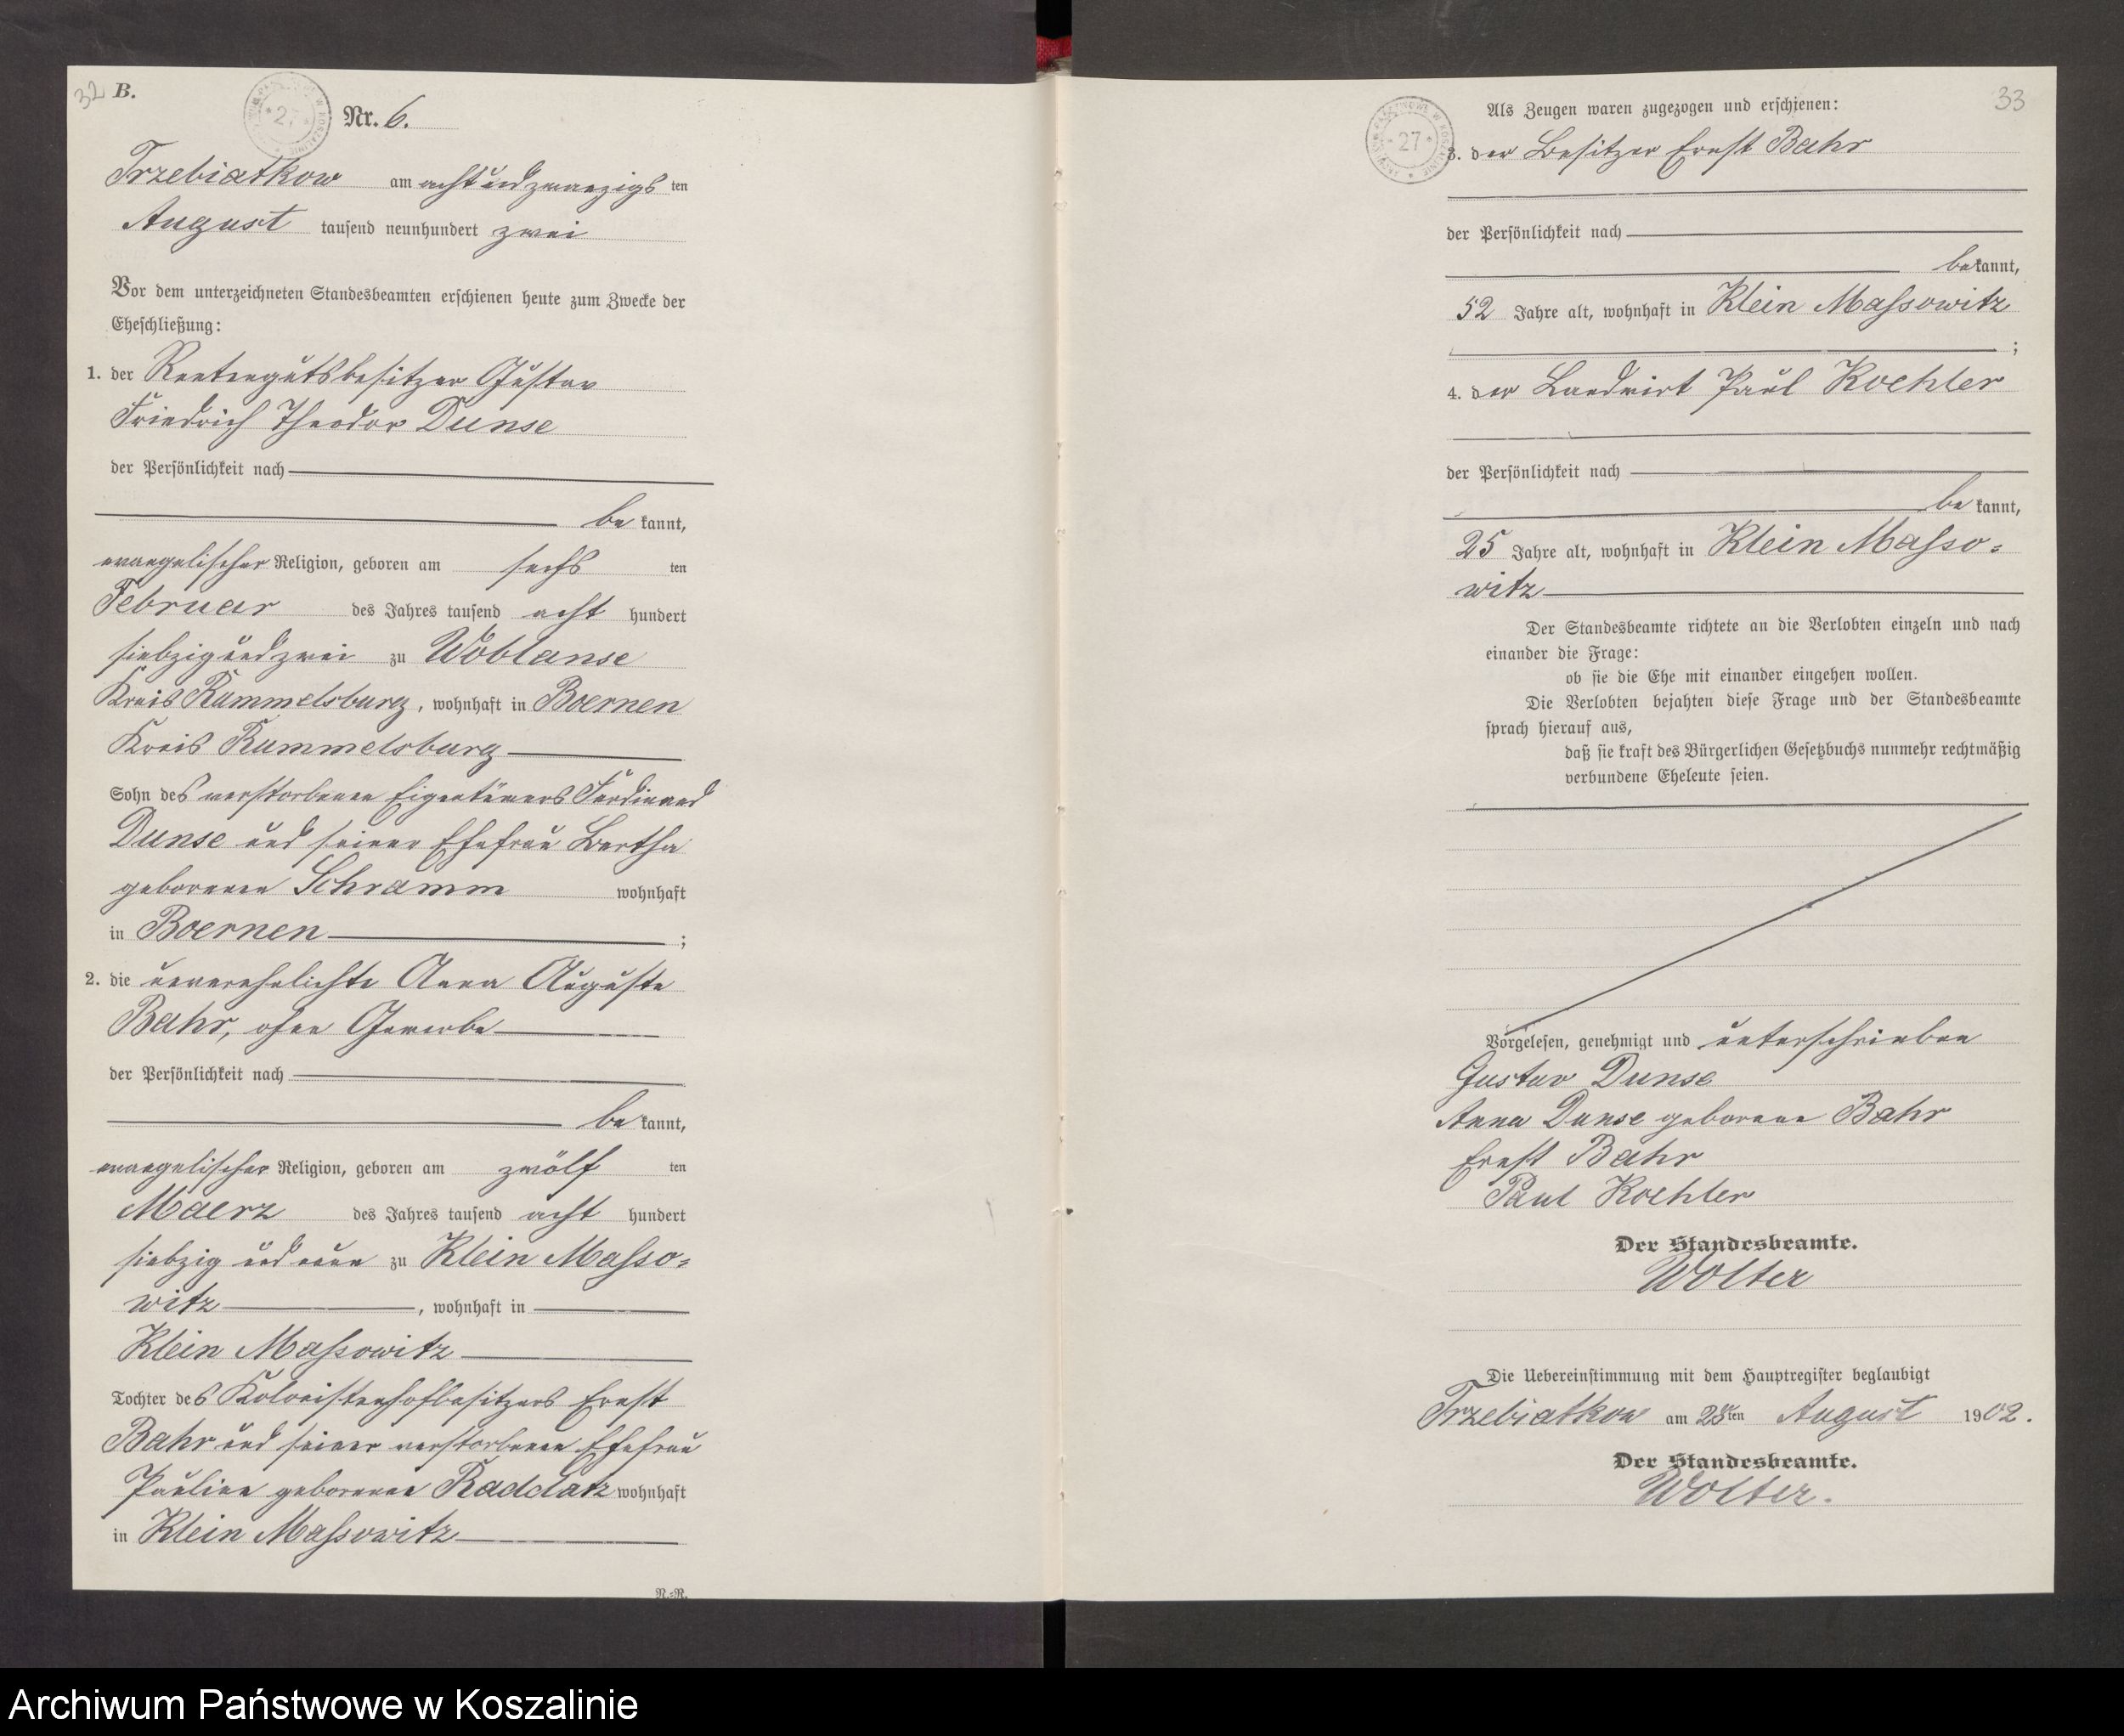 32 B.
27
Nr. 6.
Trzebiatkow am achtundzwanzigsten
August tausend neunhundert zwei
Vor dem unterzeichneten Standesbeamten erschienen heute zum Zwecke der
Eheschließung:
1. der Rentengutsbesitzer Gustav
Friedrich Theodor Dunse
der Persönlichkeit nach
bekannt,
evangelischer Religion, geboren am sechsten
Februar des Jahres tausend acht hundert
siebzigundzwei zu Woblanse
Kreis Rummelsburg, wohnhaft in Boernen
Kreis Rummelsburg
Sohn des verstorbenen Eigentümers Ferdinand
Dunse und seiner Ehefrau Bertha
geborenen Schramm wohnhaft
in Boernen ;
2. die unverehelichte Anna Auguste
Bahr, ohne Gewerbe
der Persönlichkeit nach
bekannt,
evangelischer Religion, geboren am zwölften
Maerz des Jahres tausend acht hundert
siebzig und neun zu Klein Masso-
witz , wohnhaft in
Klein Massowitz
Tochter des Kolonistenhofbesitzers Ernst
Bahr und seiner verstorbenen Ehefrau
Pauline geborenen Raddatz wohnhaft
in Klein Massowitz
N.-R.
33
27
Als Zeugen waren zugezogen und erschienen:
3. der Besitzer Ernst Bahr
der Persönlichkeit nach
bekannt,
52 Jahre alt, wohnhaft in Klein Massowitz
;
4. der Landwirt Paul Koehler
der Persönlichkeit nach
bekannt,
25 Jahre alt, wohnhaft in Klein Masso-
witz
Der Standesbeamte richtete an die Verlobten einzeln und nach
einander die Frage:
ob sie die Ehe mit einander eingehen wollen.
Die Verlobten bejahten diese Frage und der Standesbeamte
sprach hierauf aus,
daß sie kraft des Bürgerlichen Gesetzbuchs nunmehr rechtmäßig
verbundene Eheleute seien.
Vorgelesen, genehmigt und unterschrieben
Gustav Dunse
Anna Dunse geborene Bahr
Ernst Bahr
Paul Koehler
Der Standesbeamte.
Wolter
Die Uebereinstimmung mit dem Hauptregister beglaubigt
Trzebiatkow am 28ten August 1902.
Der Standesbeamte.
Wolter.
Archiwum Państwowe w Koszalinie